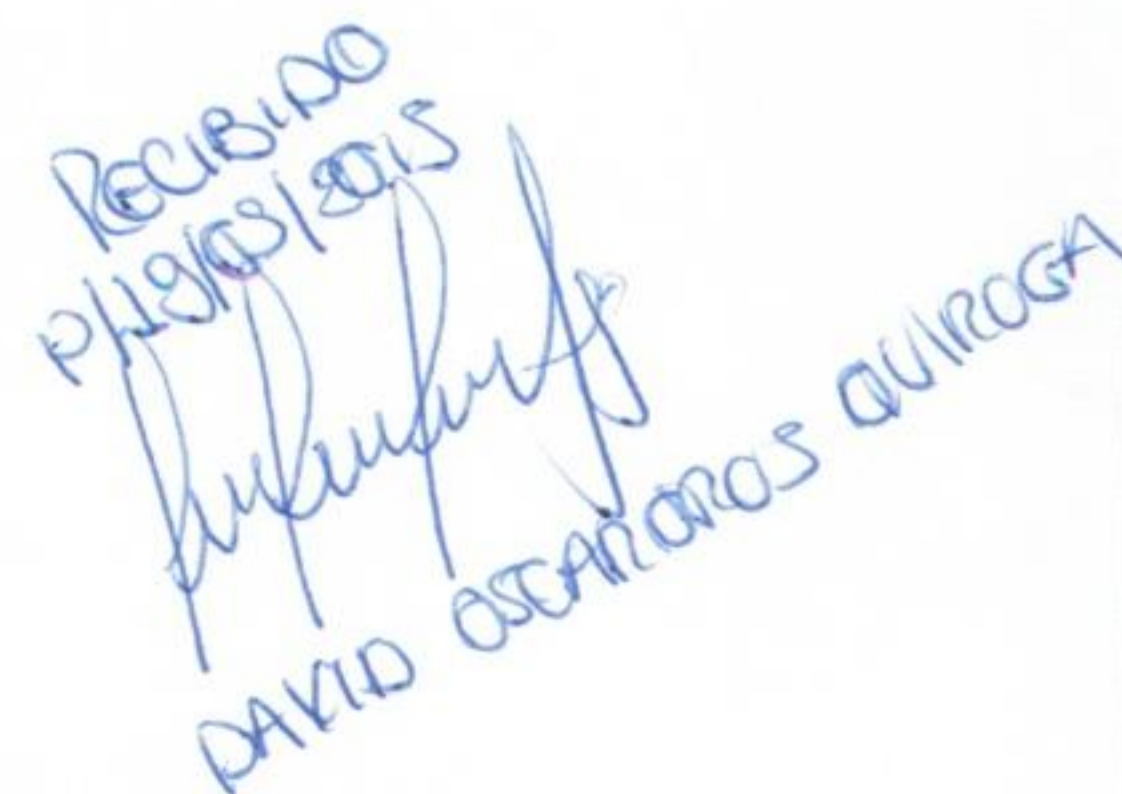 RECIBIDO
P/19/03/2015
DAVID OSCAR OROS QUIROGA